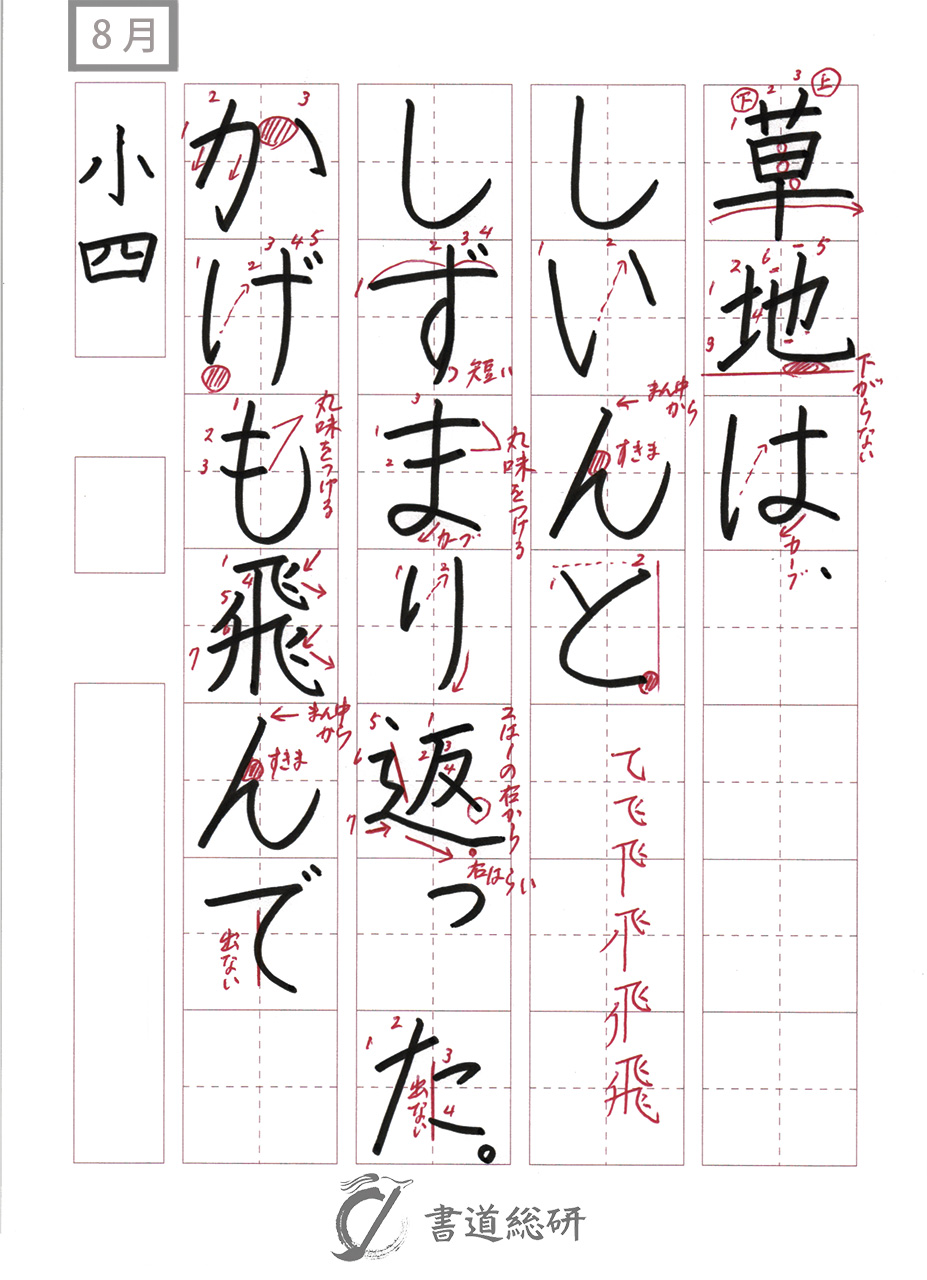 8月
草地は、
しいんと
しずまり返った。
かげも飛んで
小四
下
上
下がらない
カーブ
まん中から
すきま
短い
丸味をつける
カーブ
2は1の右から
右はらい
出ない
丸味をつける
まん中から
すきま
出ない
書道総研